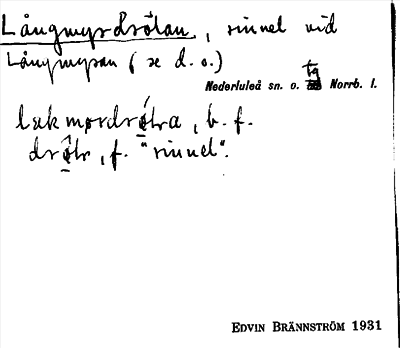 Långmyrdrötan, sinnel vid
Långmyran (se d. o.)
Nederluleå sn. o. tg Norrb. l.
b. f.
, f. "sinnel".
EDVIN BRÄNNSTRÖM 1931